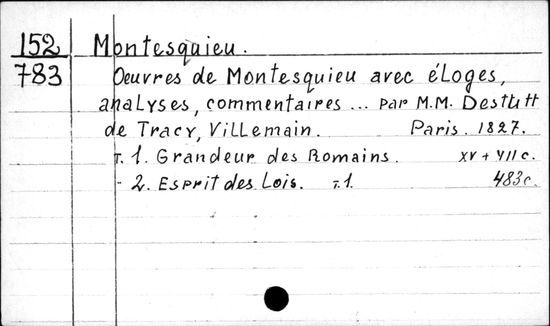 152 Montesquieu.
783 Oeuvres de Montesquieu avec éLoges,
analyses, commentaires ... par M.M. Destutt
de Tracy, Villemain. Paris. 1827.
т. 1. Grandeur des Romains. XV + 411 c.
- 2. Esprit des Lois. т. 1. 483 c.